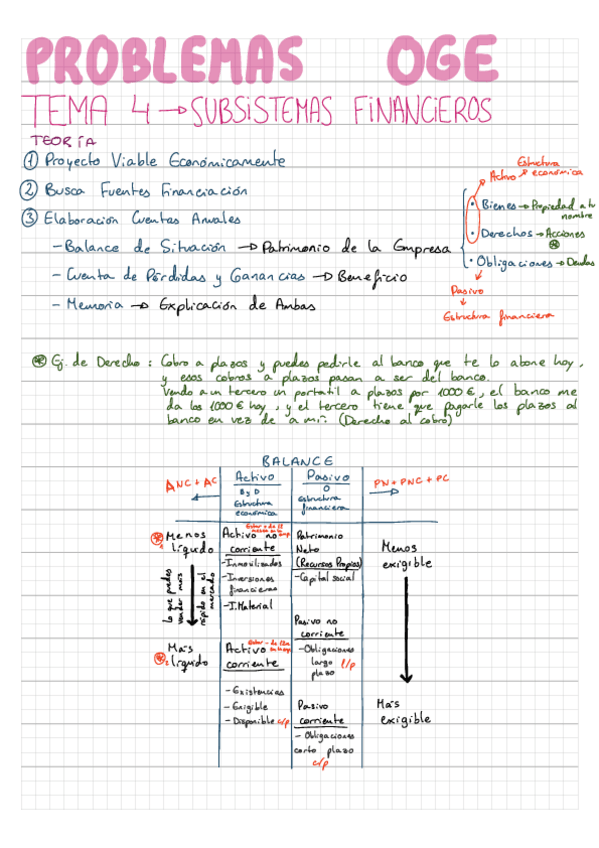 PROBLEMAS OGE
TEMA 4 → SUBSISTEMAS FINANCIEROS
TEORÍA
① Proyecto Viable Económicamente
② Busca Fuentes Financiación
③ Elaboración Cuentas Anuales
- Balance de Situación → Patrimonio de la Empresa
- Cuenta de Pérdidas y Ganancias → Beneficio
- Memoria → Explicación de Ambas
Estructura
Activo económica
• Bienes → Propiedad a tu
nombre
• Derechos → Acciones
• Obligaciones → Deudas
Pasivo
Estructura financiera
Ej. de Derecho: Cobro a plazos y puedes pedirle al banco que te lo abone hoy,
y esos cobros a plazos pasan a ser del banco.
Vendo a un tercero un portatil a plazos por 1000 €, el banco me
da los 1000 € hoy, y el tercero tiene que pagarle los plazos al
banco en vez de a mi. (Derecho al cobro)
BALANCE
ANC + AC
Activo
B y D
Estructura
económica
Pasivo
O
estructura
financiera
PN + PNC + PC
Menos
líquido
lo que puedes
vender más
rápido en el
mercado
Más
líquido
Activo no
corriente
- Inmovilizados
- Inversiones
financieras
- I. Material
Activo
corriente
- Existencias
- Exigible
- Disponible c/p
Patrimonio
Neto
(Recursos Propios)
- Capital social
Pasivo no
corriente
- Obligaciones
largo l/p
plazo
Pasivo
corriente
- Obligaciones
corto plazo
c/p
Menos
exigible
Más
exigible